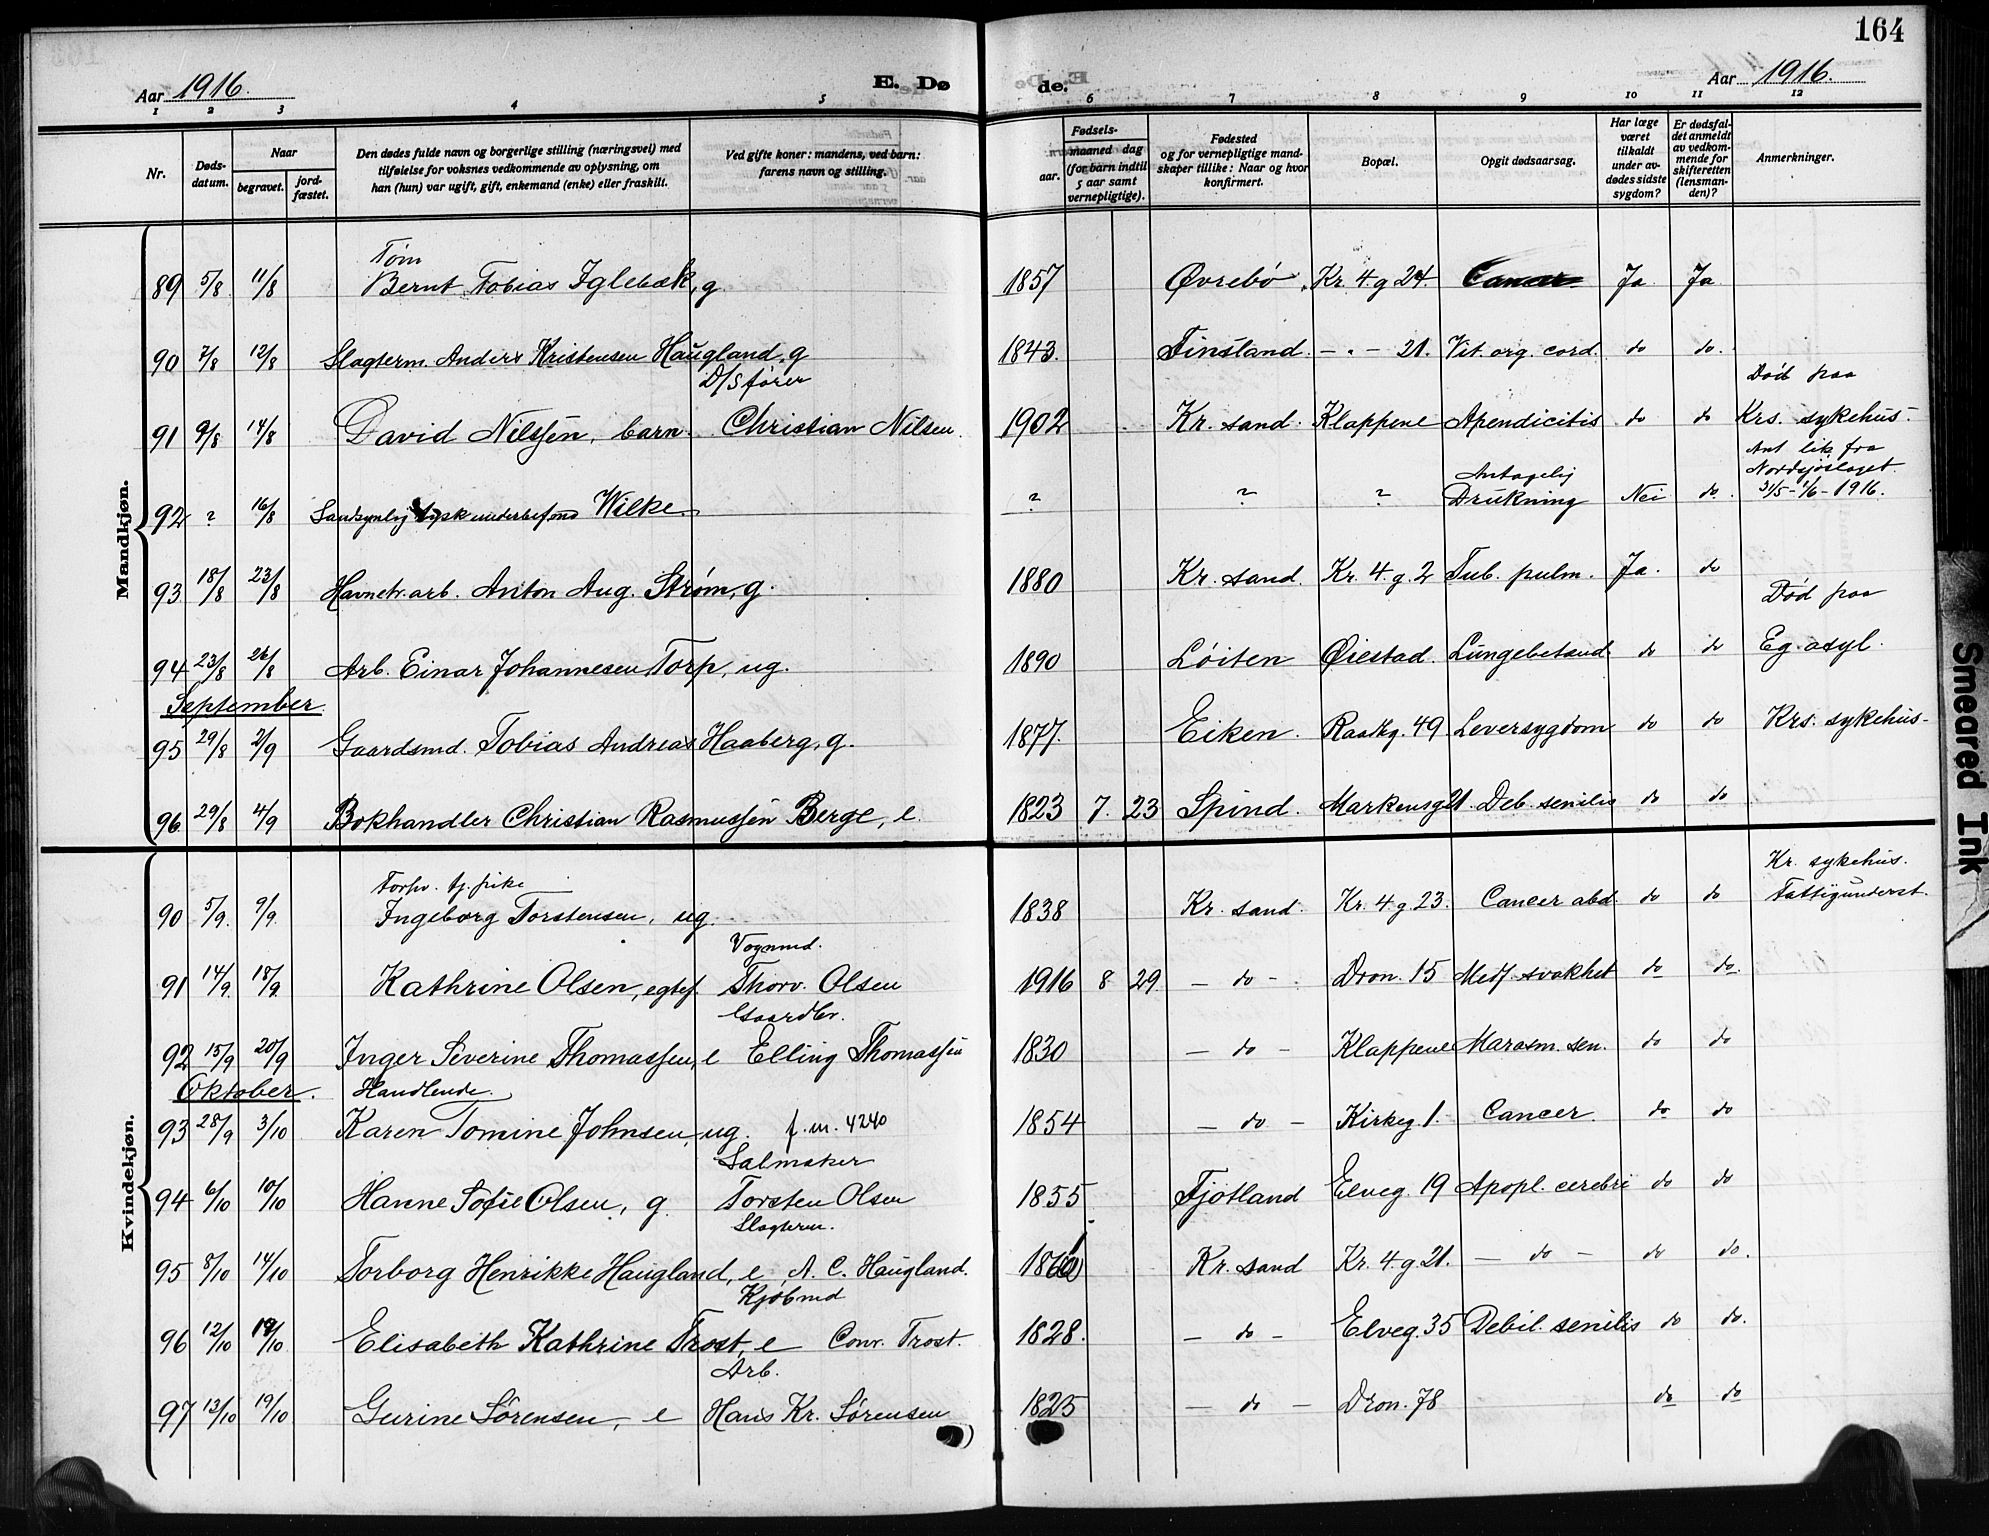 164
Aar 1916. E. Dø de. Aar 1916.
1 2 3 4 5 6 7 8 9 10 11 12
Nr. Døds-datum. Naar begravet. jord-fæstet. Den dødes fulde navn og borgerlige stilling (næringsvei) med tilføielse for voksnes vedkommende av oplysning, om han (hun) var ugift, gift, enkemand (enke) eller fraskilt. Ved gifte koner: mandens, ved barn: farens navn og stilling. Fødsels- aar. maaned dag (for barn indtil 5 aar samt vernepligtige). Fødested og for vernepligtige mand-skaper tillike: Naar og hvor konfirmert. Bopæl. Opgit dødsaarsag. Har læge været tilkaldt under av-dødes sidste sygdom? Er dødsfal-det anmeldt av vedkom-mende for skifteretten (lensman-den)? Anmerkninger.
Mandkjøn.
Tøm
89 5/8 11/8 Bernt Tobias Iglebæk, g 1857 Øvrebø Kr. 4. g 24. Cancer Ja Ja
90 7/8 12/8 Slagterm. Anders Kristensen Haugland, g 1843. Finsland. - " - 21. Vit. org. cord. do do.
D/S fører Død paa
91 9/8 14/8 David Nilssen, barn. Christian Nilsen. 1902 Kr. sand. Klappene Apendicitis do do Krs. sykehus.
Ant. lik fra
Antagelig Nordsjøslaget
92 ? 16/8 Sandsynlig tysk underbefend Wilke ? ? ? Drukning Nei do. 31/5-1/6-1916.
93 18/8 23/8 Havnetr. arb. Anton Aug. Strøm, g. 1880 Kr. sand. Kr. 4. g. 2 Tub. pulm. Ja. do
Død paa
94 23/8 26/8 Arb. Einar Johannesen Torp, ug. 1890 Løiten Øiestad. Lungebetænd do do Eg. asyl.
September.
95 29/8 2/9 Gaardsmd. Tobias Andreas Haaberg, g. 1877. Eiken. Raadhg. 49 Leversygdom do do Krs. sykehus.
96 29/8 4/9 Bokhandler Christian Rasmussen Berge, e. 1823 7. 23 Spind. Markensg 21. Deb. senilis do do
Kvindekjøn.
Forhv. tj. pike Kr. sykehus.
90 5/9. 9/9. Ingeborg Torstensen, ug. 1838 Kr. sand. Kr. 4. g. 23. Cancer abd. do do Fattigunderst.
Vognmd.
91 14/9. 18/9. Kathrine Olsen, egtef. Thorv. Olsen 1916 8 29 - do - Dron. 15 Medf. svakhet do do.
Gaardbr.
92 15/9 20/9 Inger Severine Thomassen, e Elling Thomassen 1830 - do - Klappene Marasm. sen. do do
Oktober. Handlende.
93 28/9 3/10 Karen Tomine Johnsen, ug. f. m. 4240 1854 - do - Kirkeg 1. Cancer. do do
Salmaker
94 6/10 10/10 Hanne Sofie Olsen, g. Torsten Olsen 1855 Fjotland Elveg. 19 Apopl. cerebri do do
Slagterm.
95 8/10 14/10 Torborg Henrikke Haugland, e A. C. Haugland. Kr. sand Kr. 4. g 21. - do - do do.
Kjøbmd
96 12/10 Elisabeth Kathrine Trost, e Conr. Trost. 1828. - do - Elveg. 35 Debil. senilis do do.
Arb.
97 13/10 19/10 Gurine Sørensen, e Hans Kr. Sørensen 1825 - do - Dron. 78 do do
Smeared Ink